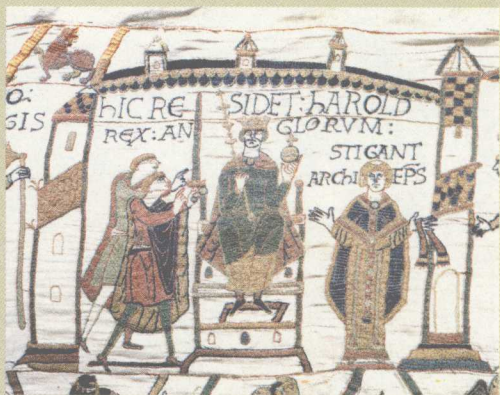 O:
GIS
hIC RE SIDET: hAROLD
REX: AN GLORVM:
STIGANT
ARChI EPS